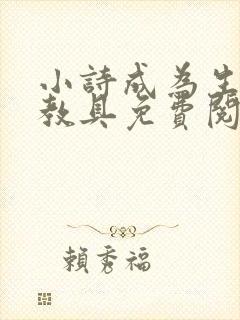 小詩成為生
教具免費閱
賴秀福